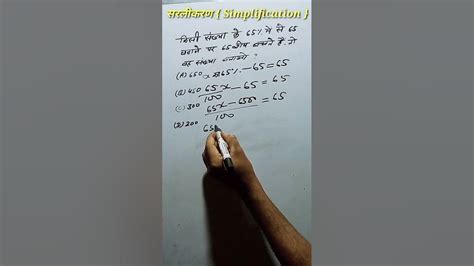 सरलीकरण { Simplification }
किसी संख्या के 65% में से 65
घटाने पर 65 शेष बचते है तो
वह संख्या बताओ ?
(A) 650 x का 65% - 65 = 65
(B) 450 65x/100 - 65 = 65
(C) 300 65x - 6500/100 = 65
(D) 200
65